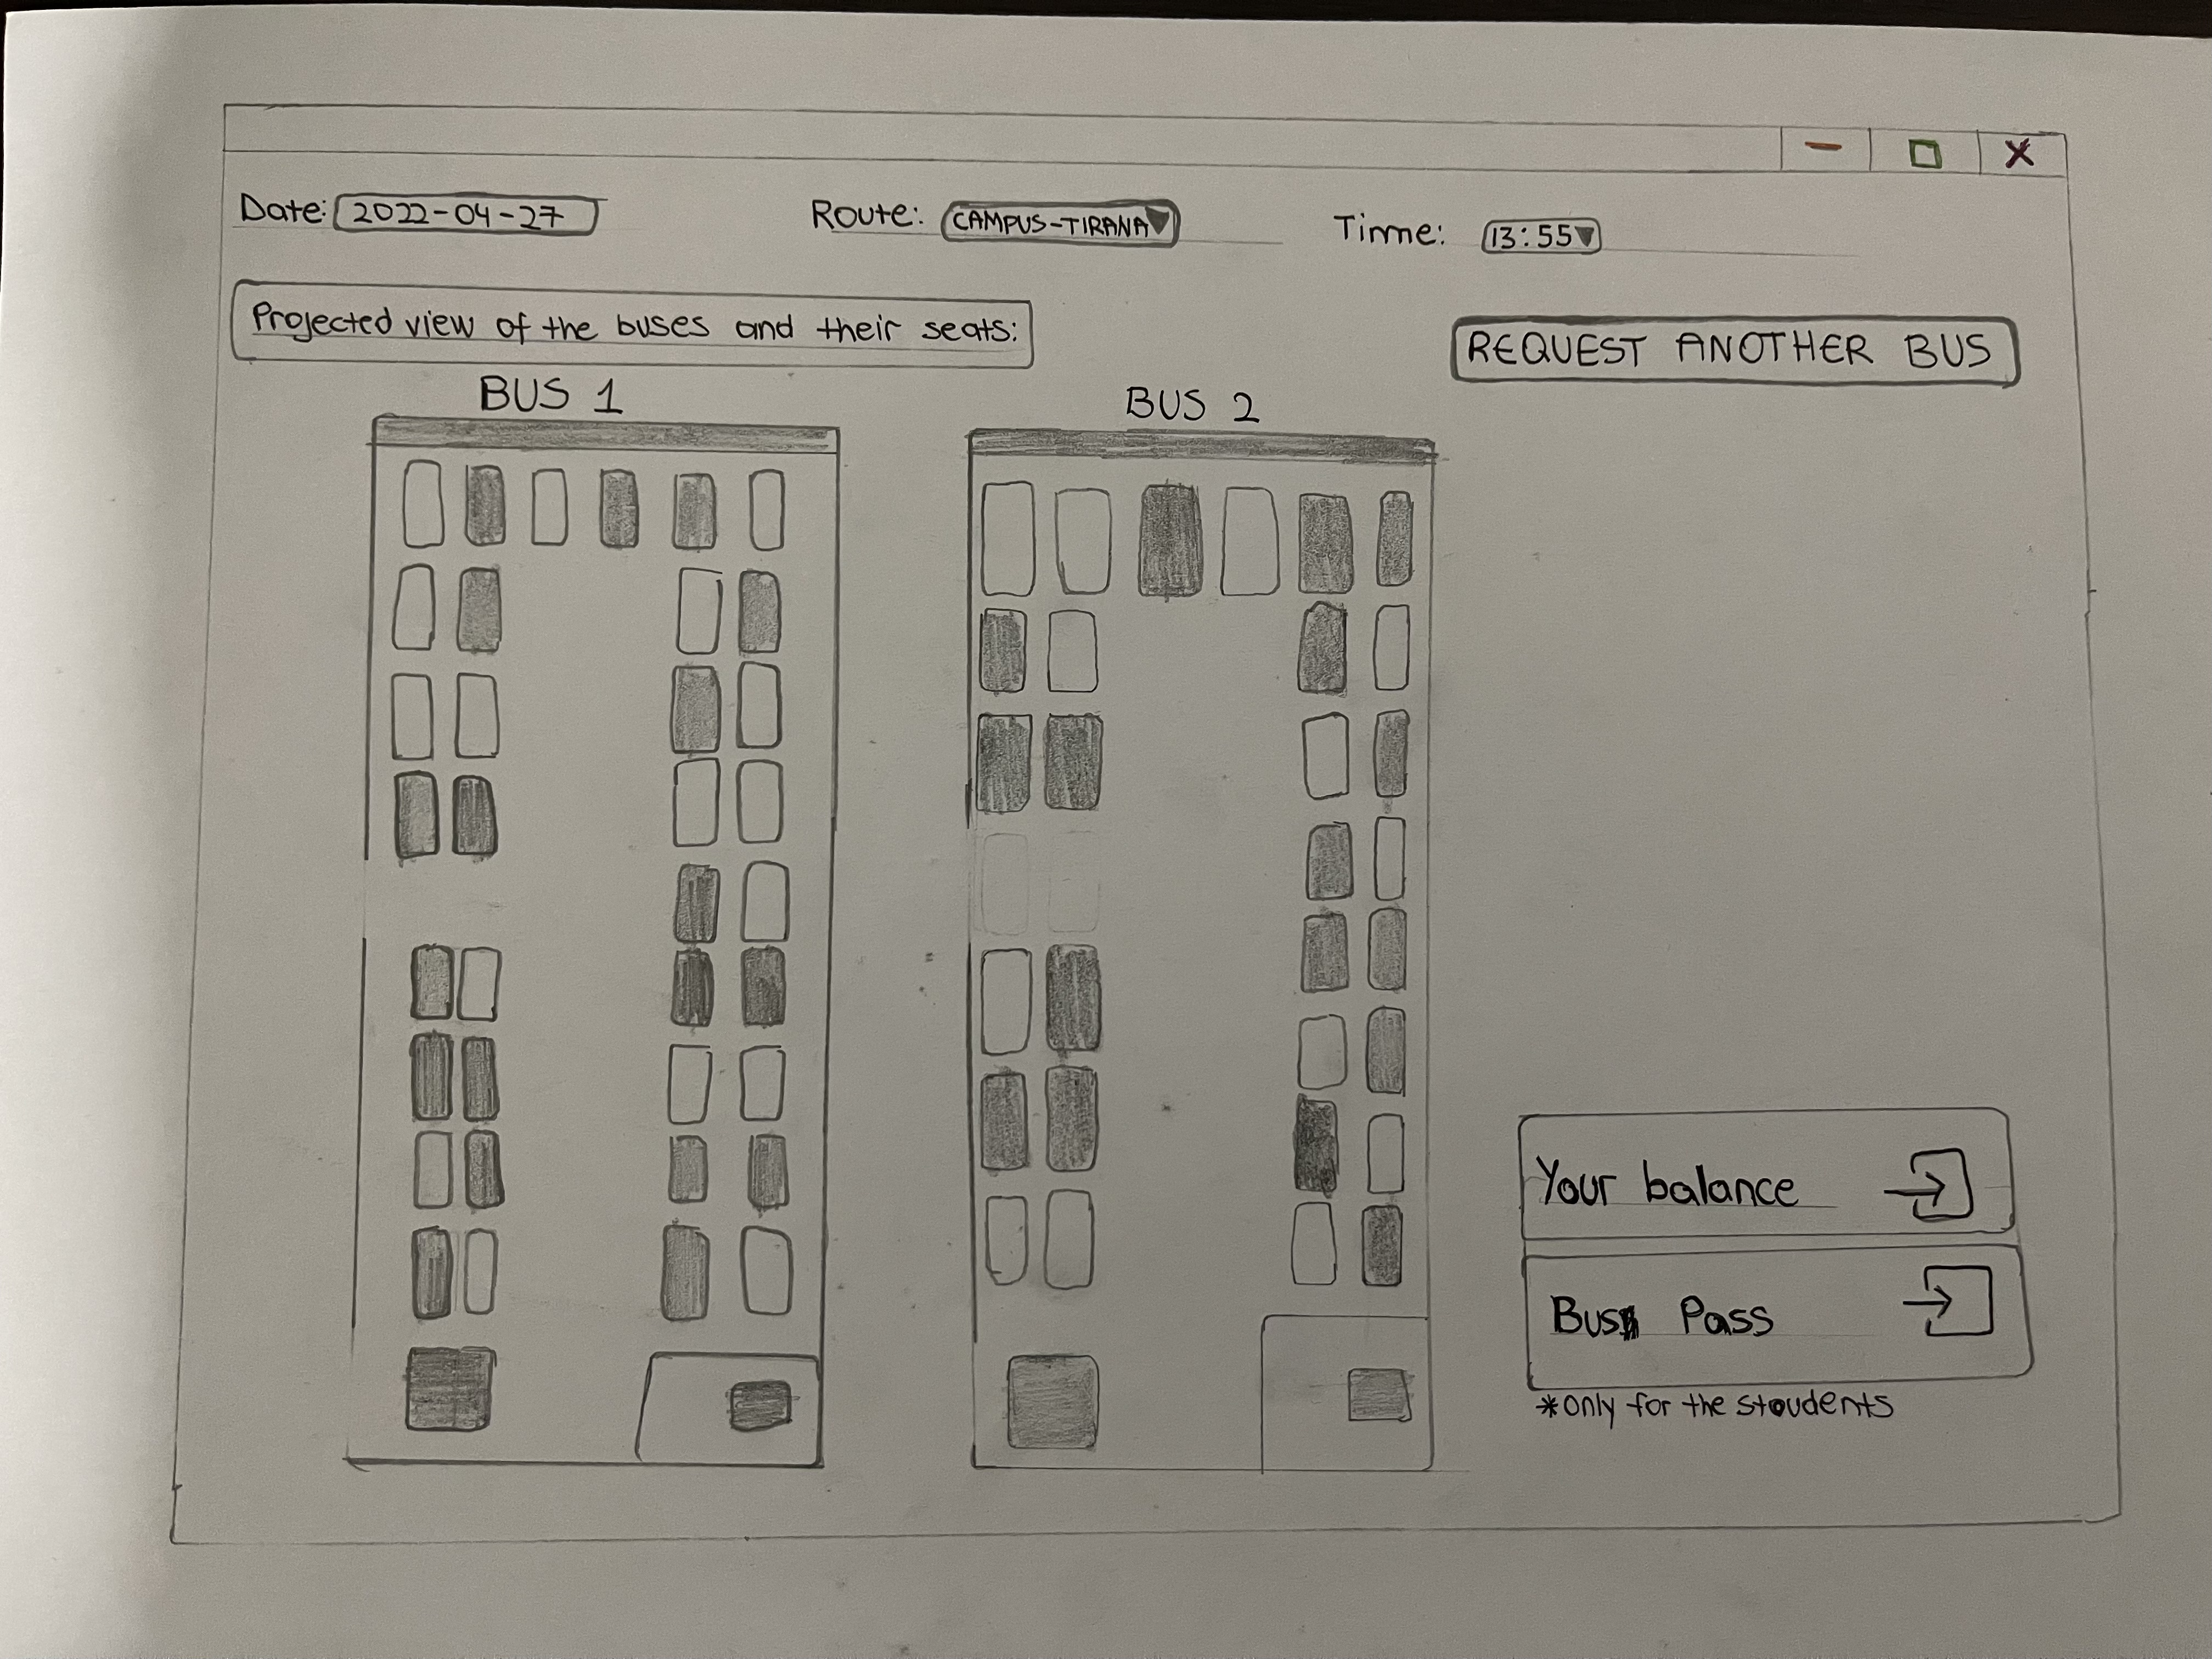 Date: 2022-04-27 Route: CAMPUS-TIRANA Time: 13:55
Projected view of the buses and their seats:
REQUEST ANOTHER BUS
BUS 1
BUS 2
Your balance
Bus Pass
*only for the stoudents